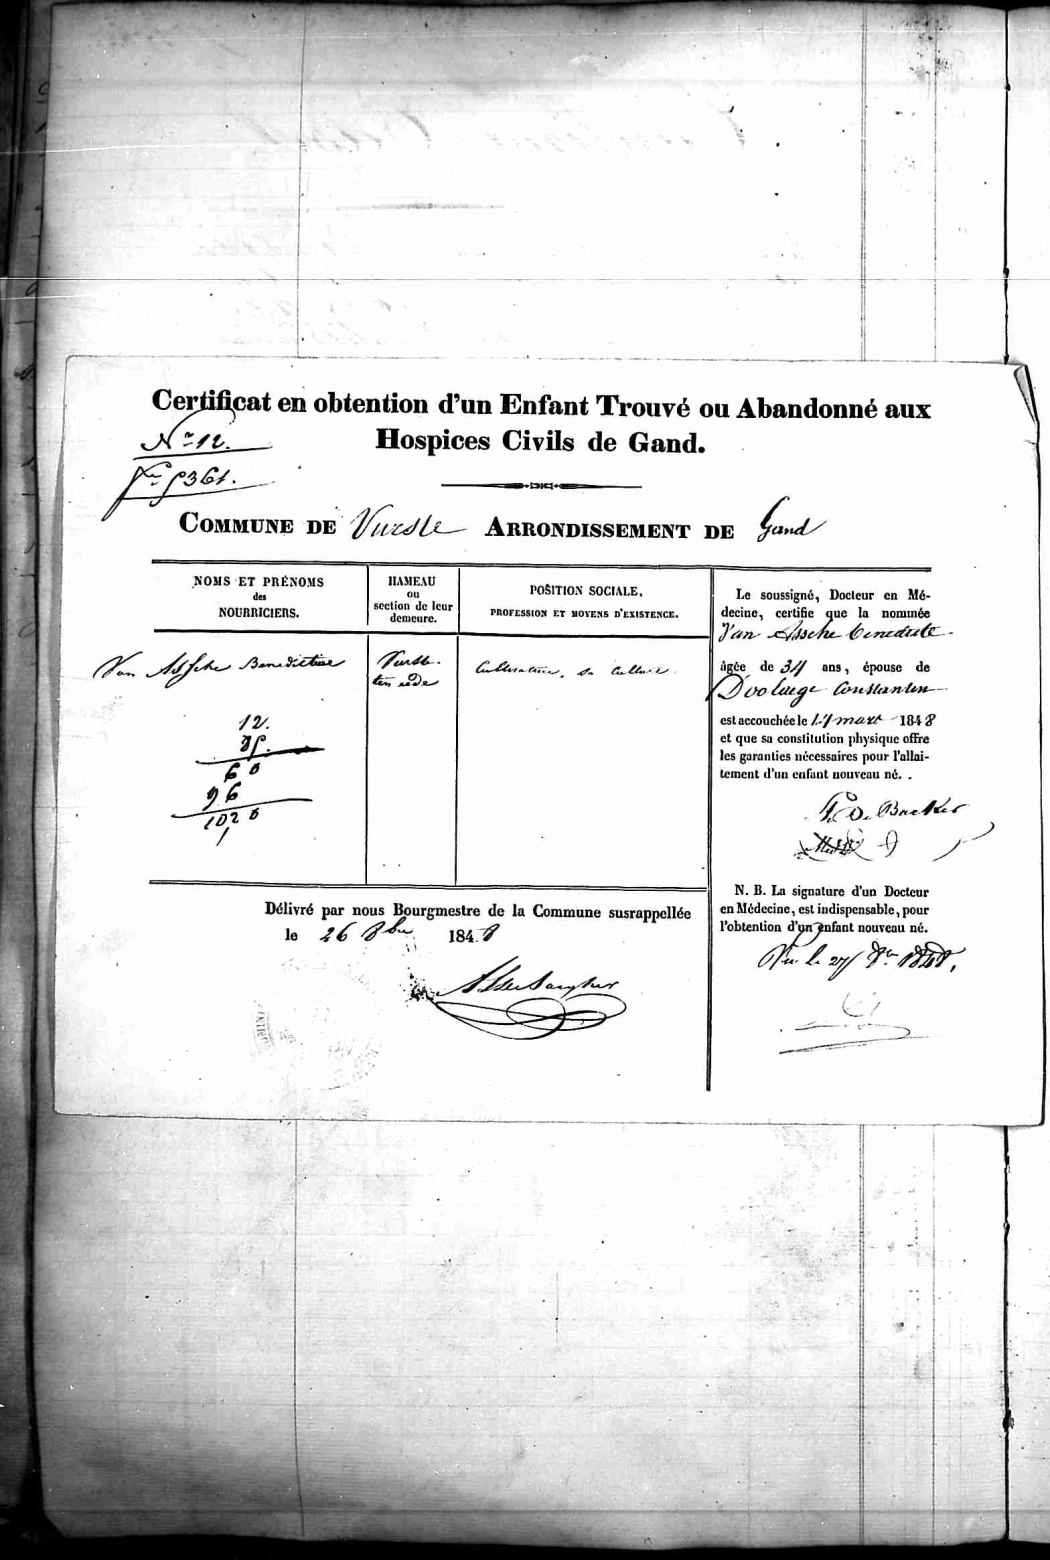 Certificat en obtention d'un Enfant Trouvé ou Abandonné aux
Hospices Civils de Gand.
N° 12.
5361.
COMMUNE DE Vurste ARRONDISSEMENT DE Gand
NOMS ET PRÉNOMS
des
NOURRICIERS.
HAMEAU
ou
section de leur
demeure.
POSITION SOCIALE,
PROFESSION ET MOYENS D'EXISTENCE.
Van Assche Benedictine
Vurste
Cultivatrice, sa culture
12.
85.
60
96
1020
Le soussigné, Docteur en Mé-
decine, certifie que la nommée
Van Assche Benedicte
âgée de 34 ans, épouse de
Constantin
est accouchée le mars 1848
et que sa constitution physique offre
les garanties nécessaires pour l'allai-
tement d'un enfant nouveau né. .
De Backer
N. B. La signature d'un Docteur
en Médecine, est indispensable, pour
l'obtention d'un enfant nouveau né.
Vu le 27 8bre 1848.
Délivré par nous Bourgmestre de la Commune susrappellée
le 26 8bre 1848